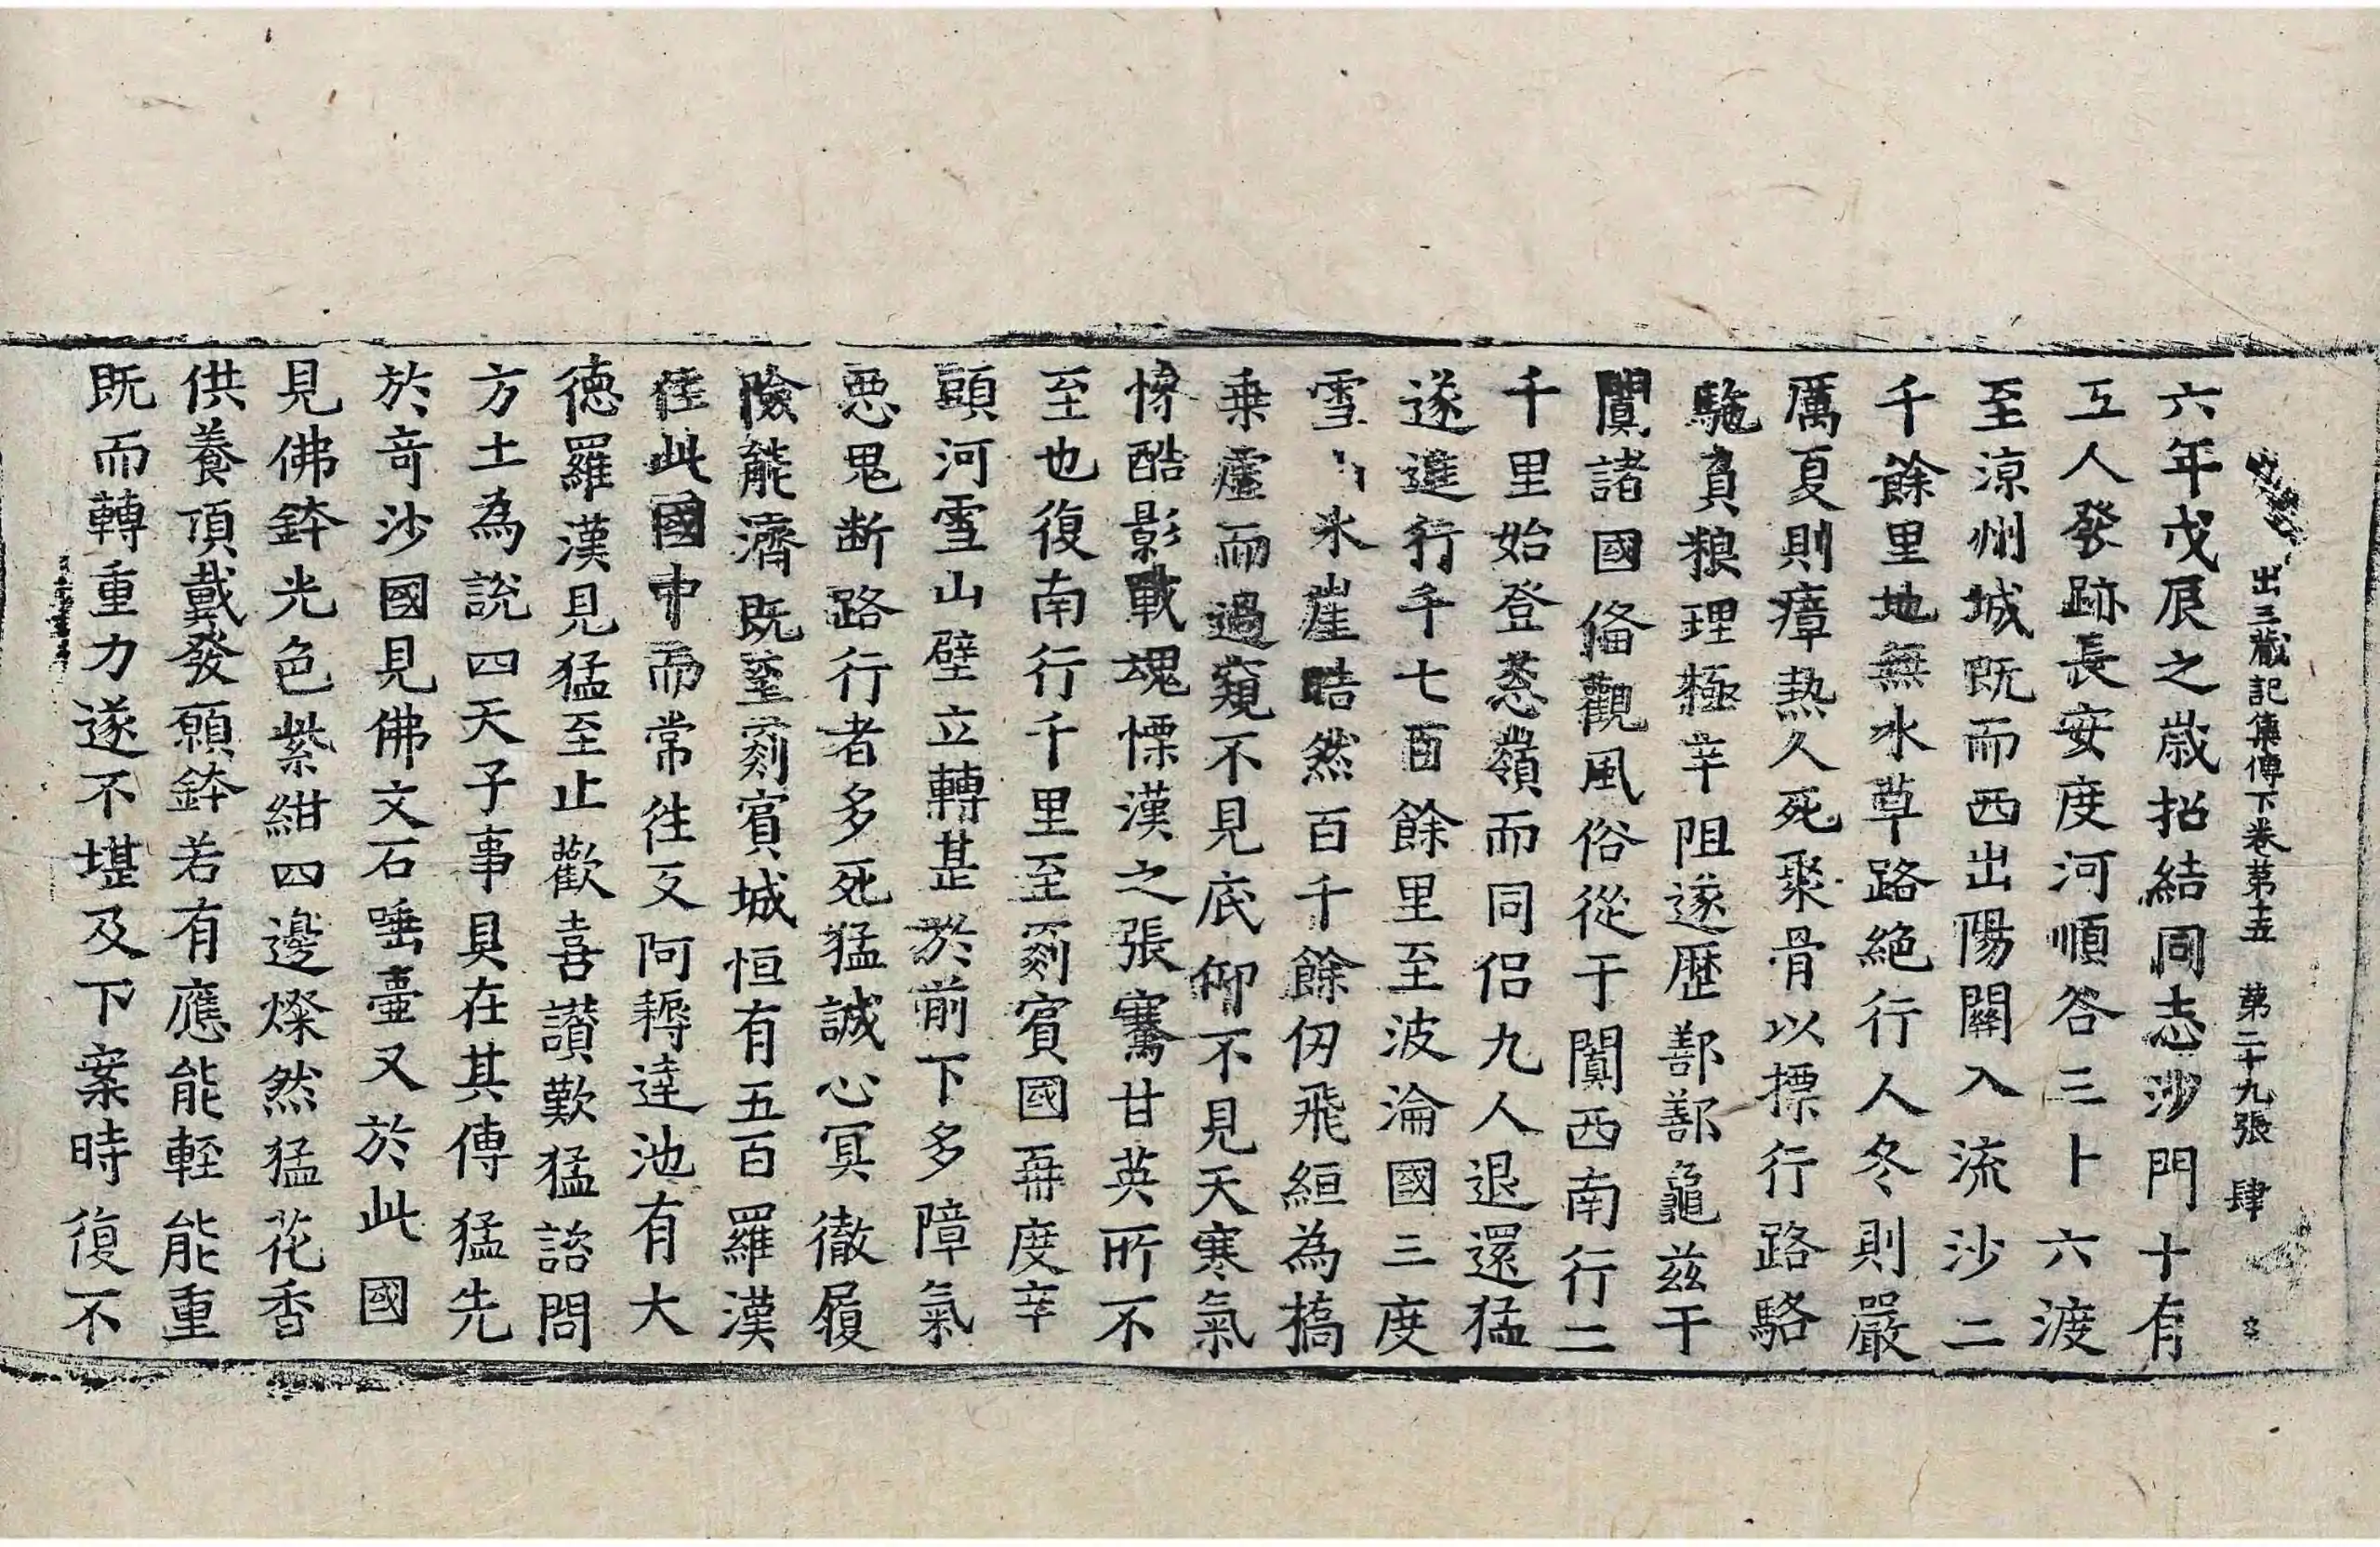 出三藏記集傳下卷第十五 第二十九張 肆
六年戊辰之歲招結同志沙門十有
五人發跡長安度河順谷三十六渡
至涼州城既而西出陽關入流沙二
千餘里地無水草路絕行人冬則嚴
厲夏則瘴熱人死聚骨以摽行路駱
駞負粮理極辛阻遂歷鄯鄯龜茲于
闐諸國俻觀風俗從于闐西南行二
千里始登葱嶺而同侶九人退還猛
遂進行千七百餘里至波淪國三度
雪 氷崖晧然百千餘仞飛絙為橋
乗虛而過窺不見底仰不見天寒氣
慘酷影戰魂慄漢之張騫甘英所不
至也復南行千里至罽賓國再度辛
頭河雪山壁立轉甚於前下多障氣
惡鬼断路行者多死猛誠心冥徹履
險能濟既至罽賓城恒有五百羅漢
住此國中而常往反阿耨達池有大
德羅漢見猛至止歡喜讃歎猛諮問
方土為說四天子事具在其傳猛先
於竒沙國見佛文石唾壷又於此國
見佛鉢光色紫紺四邊燦然猛花香
供養頂戴發願鉢若有應能輕能重
既而轉重力遂不堪及下案時復不